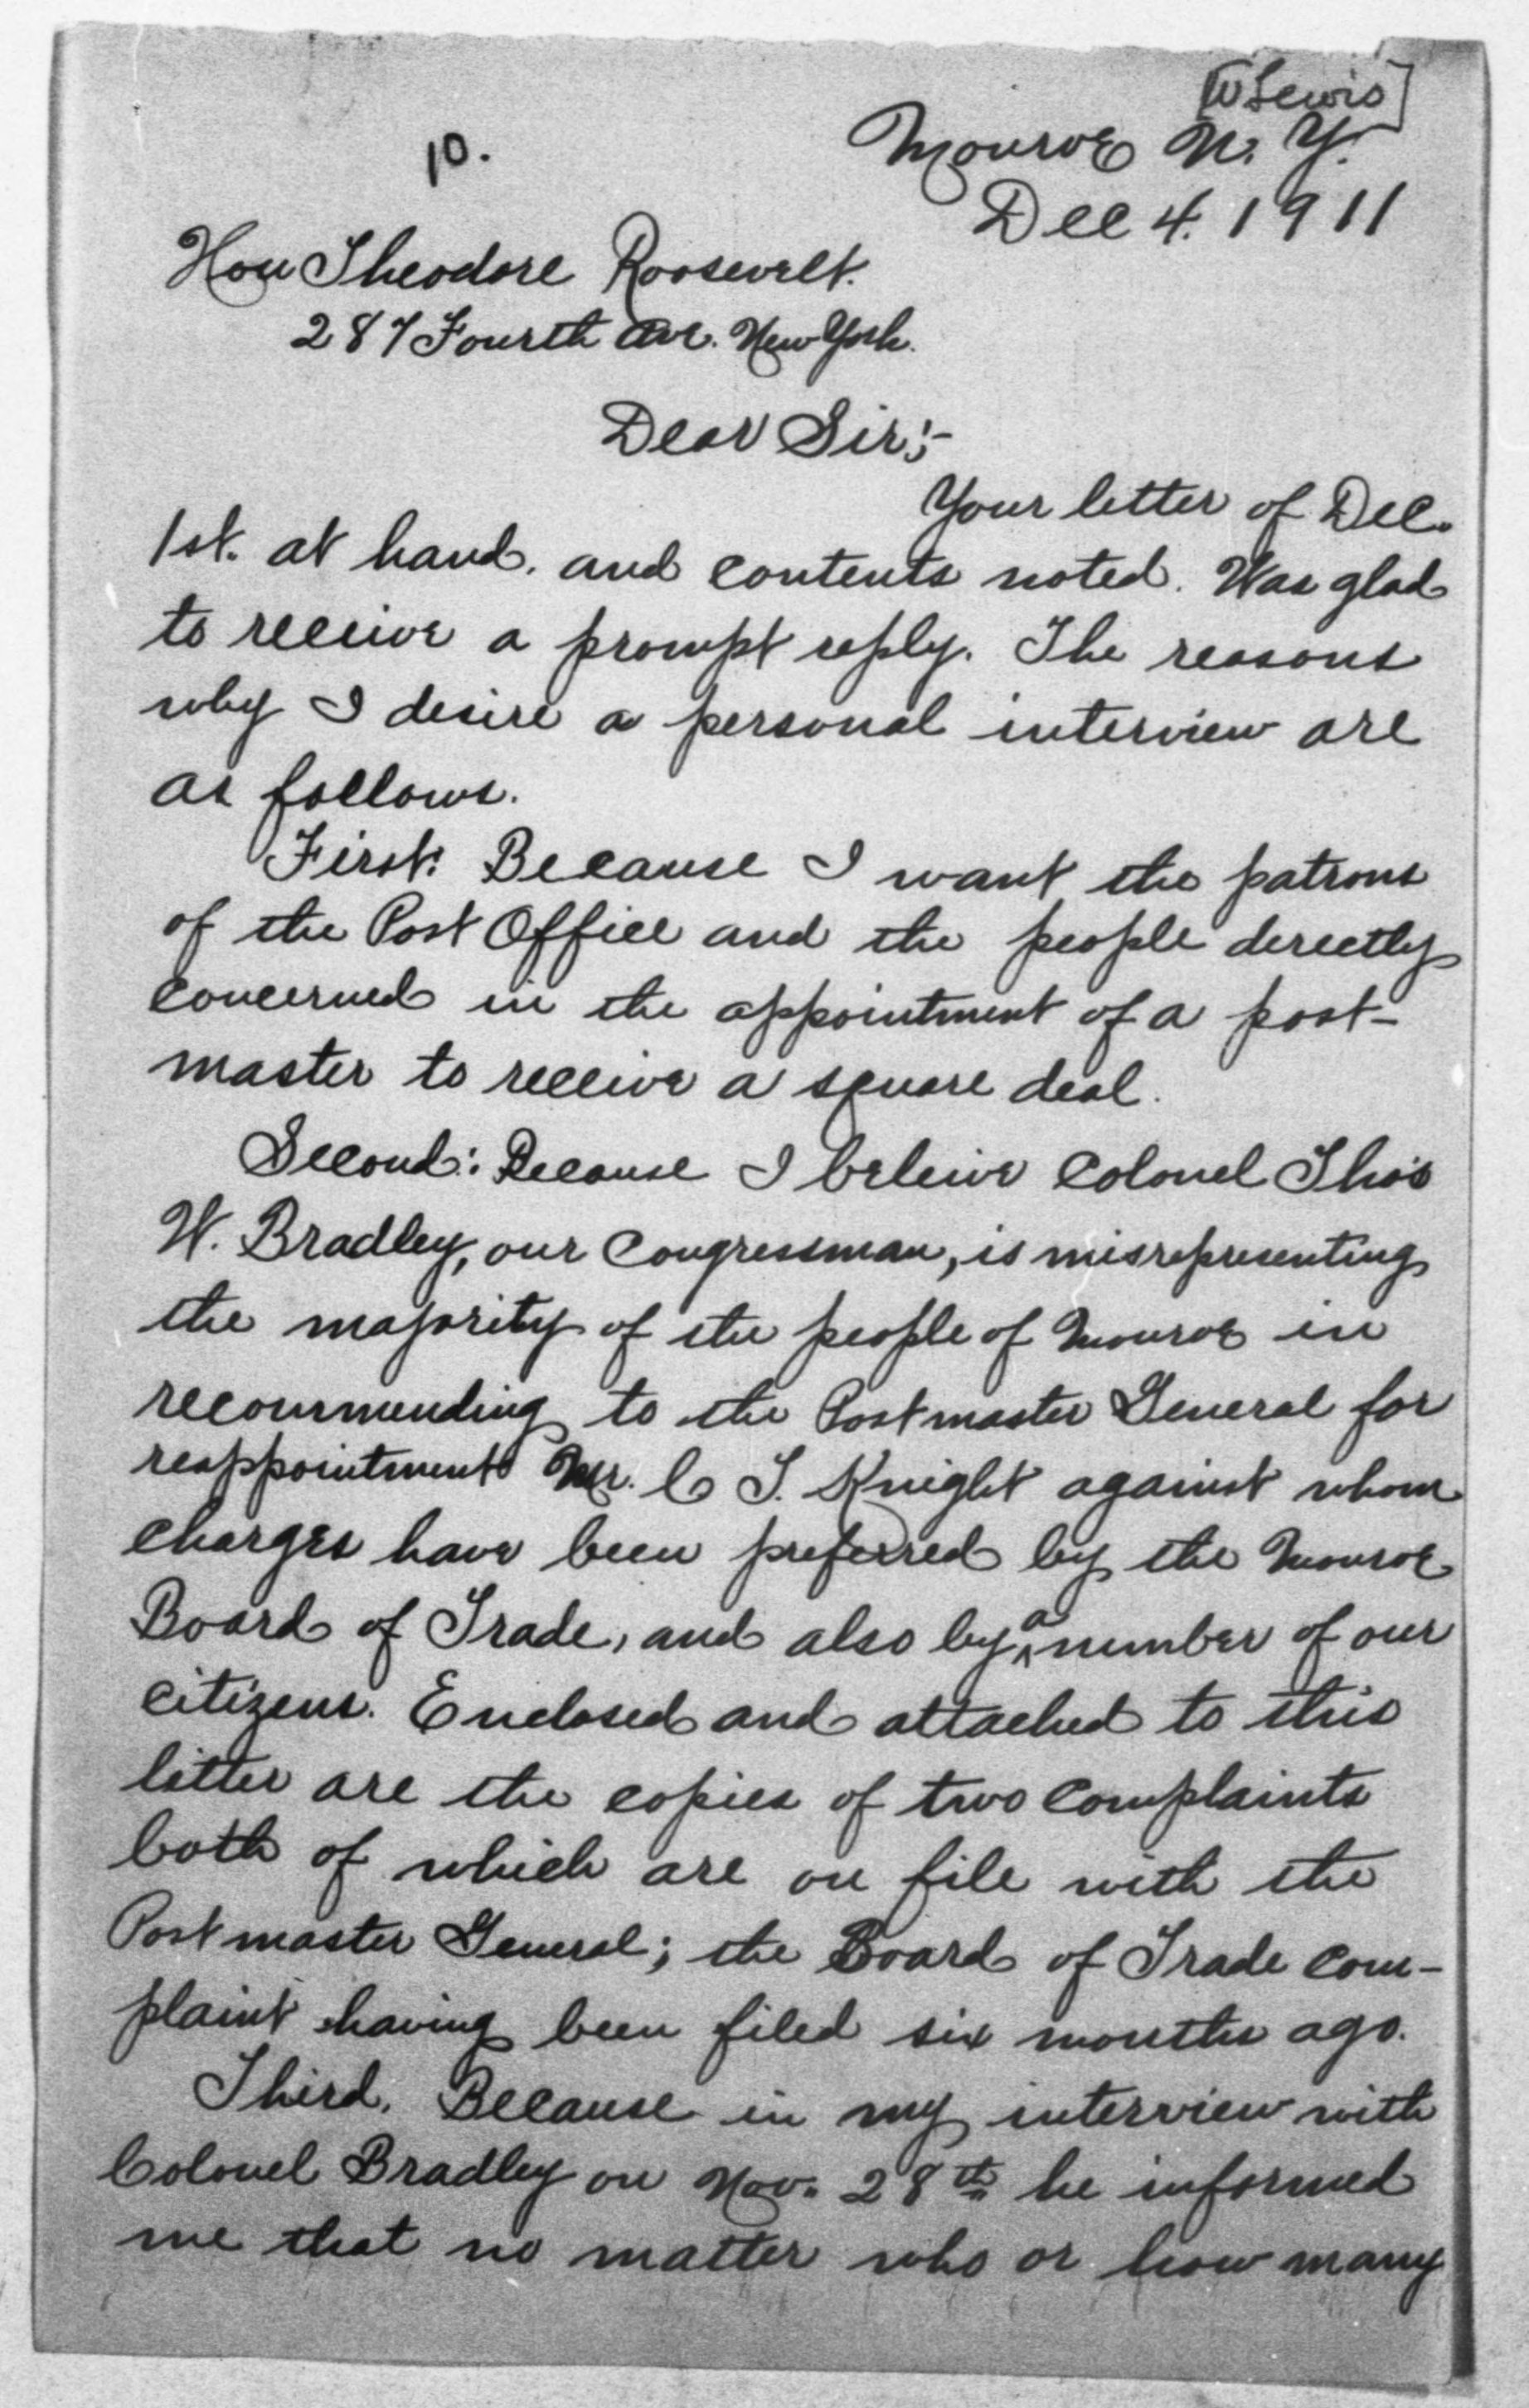 [W Lewis]
10.
Monroe N. Y.
Dec 4. 1911
Hon Theodore Roosevelt.
287 Fourth Ave. New York.
Dear Sir;-
Your letter of Dec.
1st. at hand, and contents noted. Was glad
to receive a prompt reply. The reasons
why I desire a personal interview are
as follows.
First: Because I want the patrons
of the Post Office and the people derectly
concerned in the appointment of a post-
master to receive a square deal.
Second: Because I beleive Colonel Tho's
W. Bradley, our Congressman, is misrepresenting
the majority of the people of Monroe in
recommending to the Postmaster General for
reappointment Mr. C T. Knight against whom
charges have been preferred by the Monroe
Board of Trade, and also by a number of our
citizens. Enclosed and attached to this
letter are the copies of two complaints
both of which are on file with the
Postmaster General; the Board of Trade com-
plaint having been filed six months ago.
Third. Because in my interview with
Colonel Bradley on Nov. 28th he informed
me that no matter who or how many